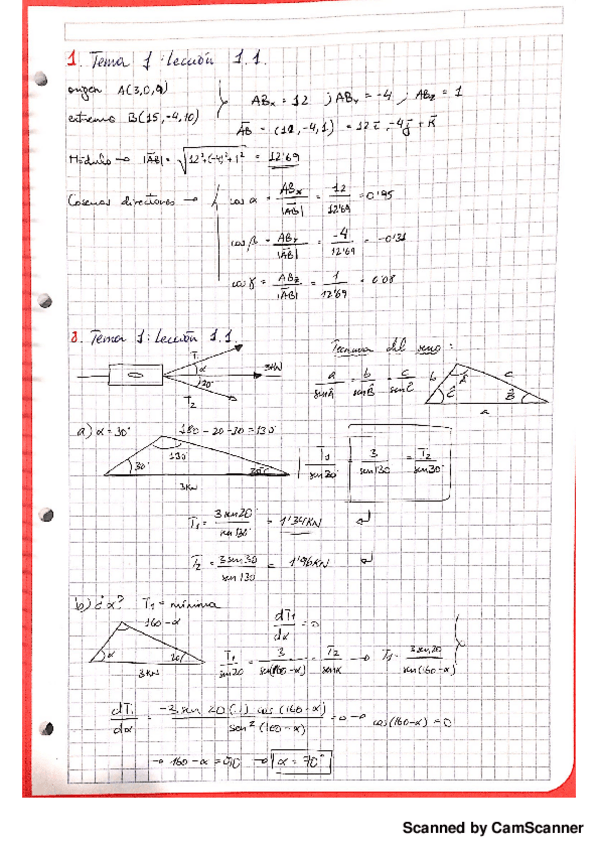 1. Tema 1: Lección 1.1.
origen A(3,0,9)
ABx = 12 ; ABy = -4 ; ABz = 1
extremo B(15,-4,10)
AB = (12,-4,1) = 12i, -4j + k
Módulo → |AB| = √12²+(-4)²+1² = 12'69
Cosenos directores → cos α = ABx/|AB| = 12/12'69 = 0'95
cos β = ABy/|AB| = -4/12'69 = -0'31
cos γ = ABz/|AB| = 1/12'69 = 0'08
8. Tema 1: Lección 1.1.
T1 α 3KN 20° T2
Teorema del seno:
a/senÂ = b/senB̂ = c/senĈ
b c Â Ĉ B̂ a
a) α = 30° 180-20-30 = 130°
30° 130° 3KN
T1/sen20° 3/sen130 = T2/sen30°
T1 = 3sen20°/sen130° = 1'34KN
T2 = 3sen30/sen130 = 1'96KN
b) ¿α? T1 = mínima
dT1/dα = 0
160-α α 20° 3KN
T1/sen20 = 3/sen(160-α) = T2/senα → T1 = 3sen20/sen(160-α)
dT1/dα = -3 sen 20 (-1) cos(160-α)/sen²(160-α) = 0 → cos(160-α) = 0
→ 160-α = 90° → α = 70°
Scanned by CamScanner